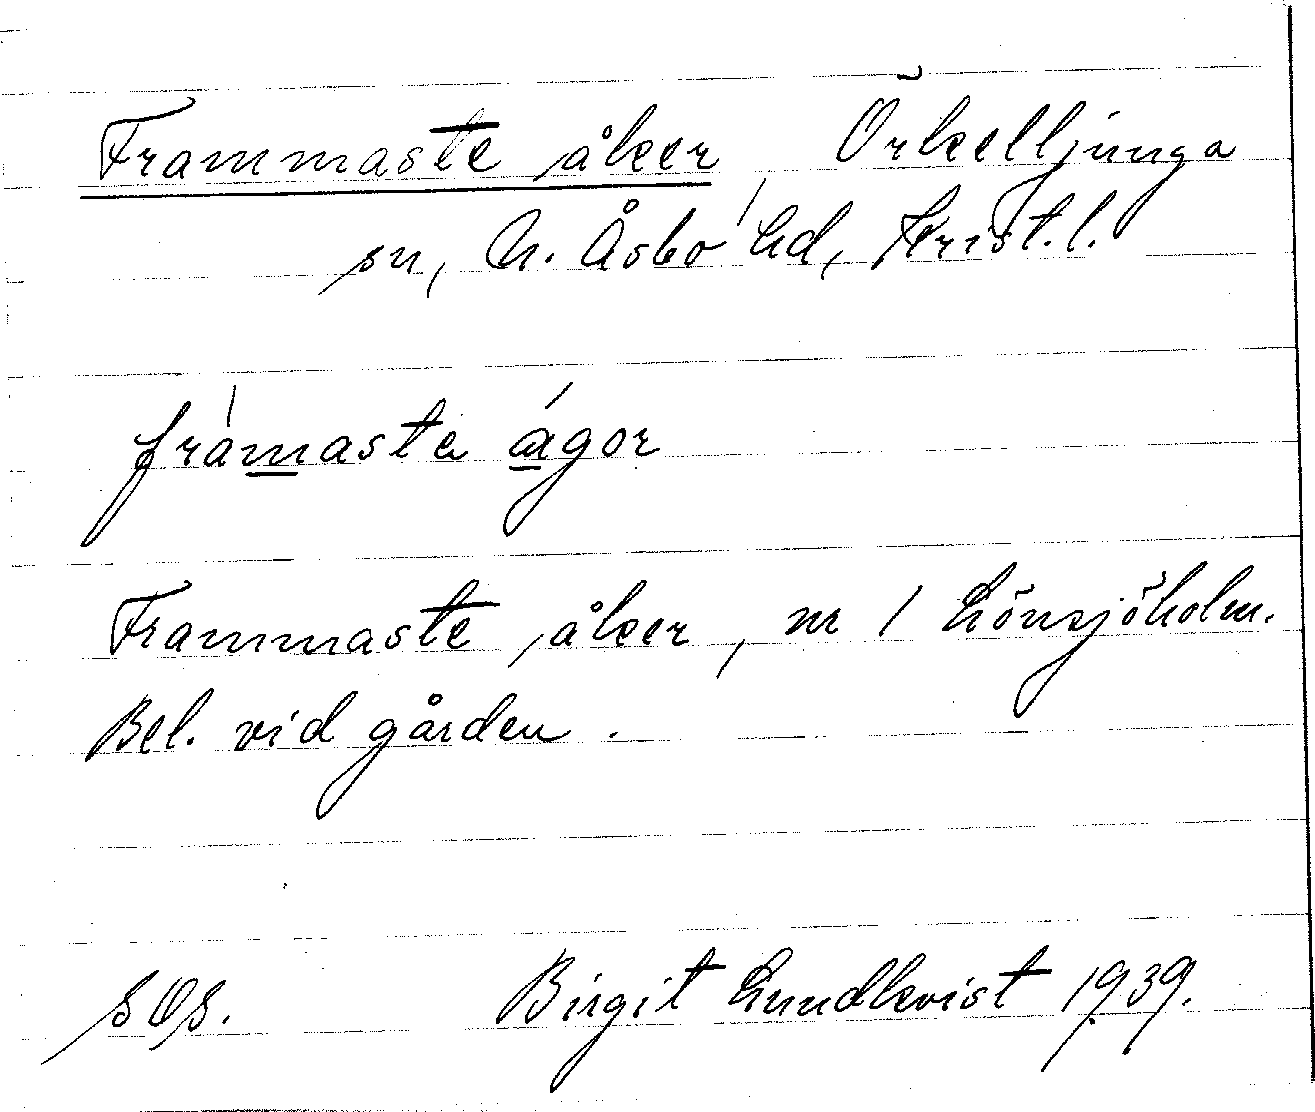 Frammaste åker Örkelljunga
sn, N. Åsbo hd, Krist.l.
frámaste ágor
Frammaste åker, nr 1 Lönsjöholm.
Bel. vid gården.
s Os. Birgit Lundkvist 1939.